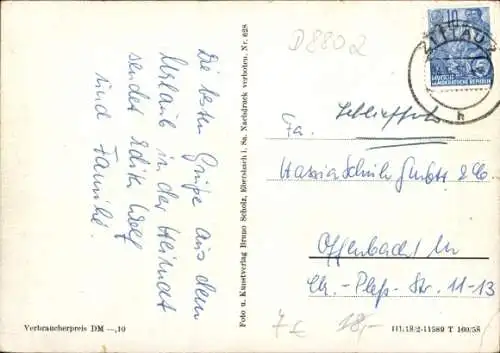 Die besten Grüße aus dem
Urlaub in der Heimat
sendet Edith Wolf
und Familie.
Foto u. Kunstverlag Bruno Scholz, Ebersbach i. Sa. Nachdruck verboten. Nr. 628
Verbraucherpreis DM —,10
D 8802
10
ZITTAU 2
DEUTSCHE
DEMOKRATISCHE REPUBLIK
h
Schließfach
Fa.
Hassia Schuhf
Offenbach / M
Chr.-Pleß-Str. 11-13
7 € 18,-
III/18/2-11589 T 160/58